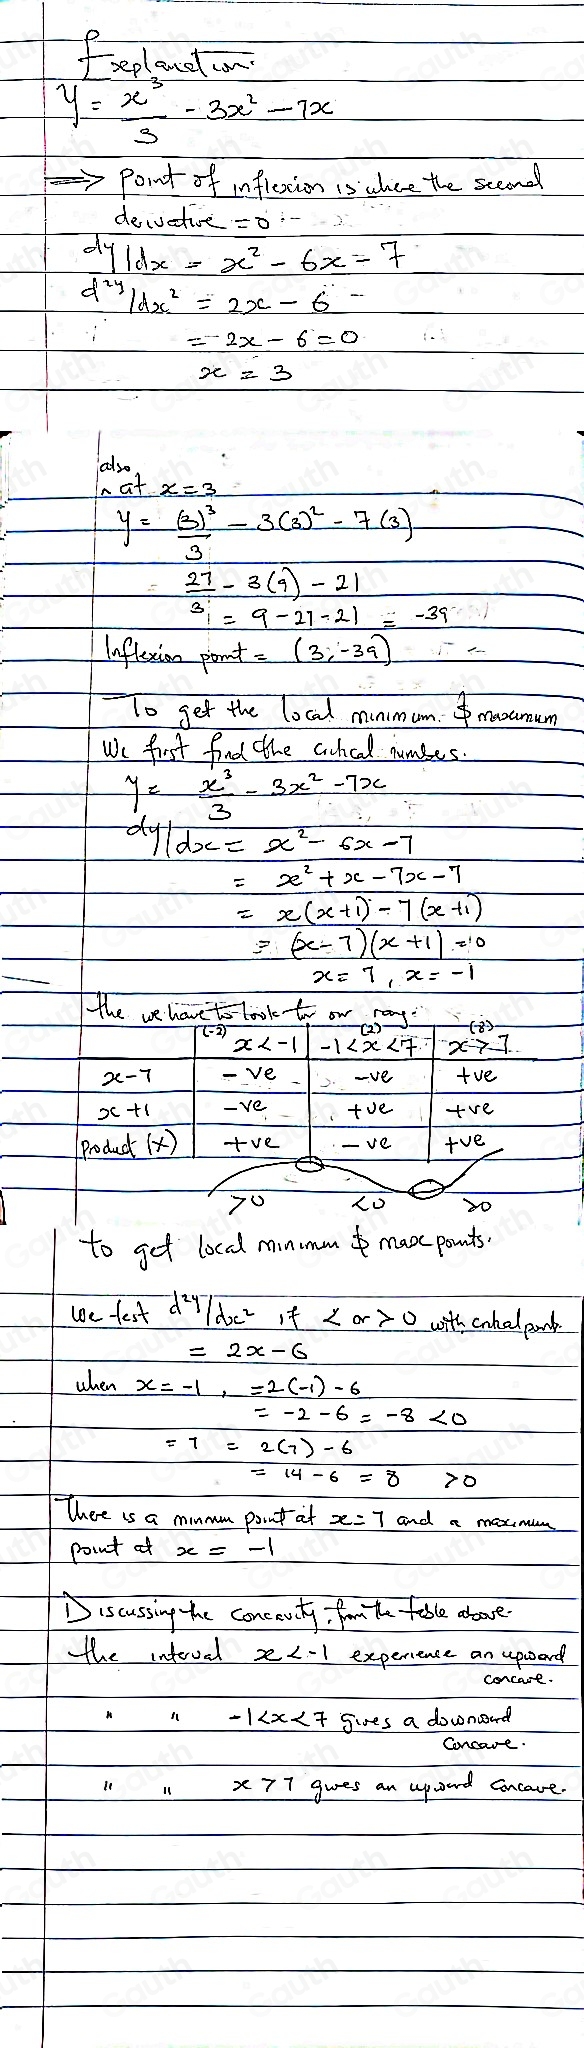 Explanation:
y = x³/3 - 3x² - 7x
⟹ point of inflexion is where the second
derivative = 0
dy/dx = x² - 6x - 7
d²y/dx² = 2x - 6
= 2x - 6 = 0
x = 3
also
^ at x = 3
y = (3)³/3 - 3(3)² - 7(3)
27/3 - 3(9) - 21
= 9 - 27 - 21 = -39
Inflexion point = (3, -39)
To get the local minimum & maximum
We first find the critical numbers.
y = x³/3 - 3x² - 7x
dy/dx = x² - 6x - 7
= x² + x - 7x - 7
= x(x+1) - 7(x+1)
= (x-7)(x+1) = 0
x = 7, x = -1
the we have to look for our rang.
(-2) (2) (8)
x < -1 -1 < x < 7 x > 7
x-7 -ve -ve +ve
x+1 -ve +ve +ve
Product (x) +ve -ve +ve
>0 <0 >0
to get local minimum & max points.
we test d²y/dx² if < or > 0 with critical point
= 2x - 6
when x = -1, = 2(-1) - 6
= -2 - 6 = -8 < 0
= 7 = 2(7) - 6
= 14 - 6 = 8 > 0
There is a minmum point at x = 7 and a maximum
point at x = -1
Discussing the concavity, from the table above.
the interval x < -1 experience an upward
concave.
" " -1 < x < 7 gives a downward
concave.
" " x > 7 gives an upward concave.